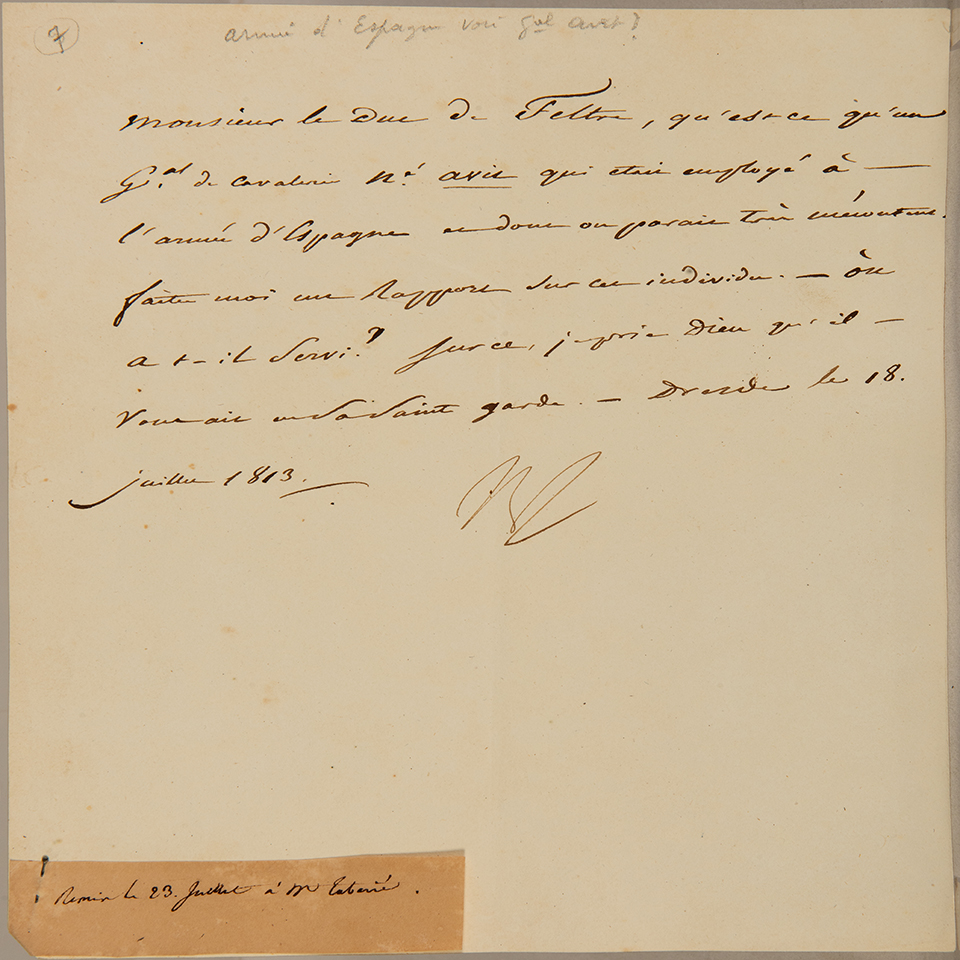 7
armée d'Espagne voir gal avit ?
Monsieur le Duc de Feltre, qu'est-ce qu'un
Gal. de cavalerie né avit qui etait employé à —
l'armée d'Espagne et dont on parait très mécontent.
faites moi un Rapport sur cet individu. — Où
a t-il Servi ? Sur ce, je prie Dieu qu'il —
Vous ait en Sa Saint garde. — Dresde le 18.
juillet 1813.
Remis le 23. Juillet à Mr Tabarié.